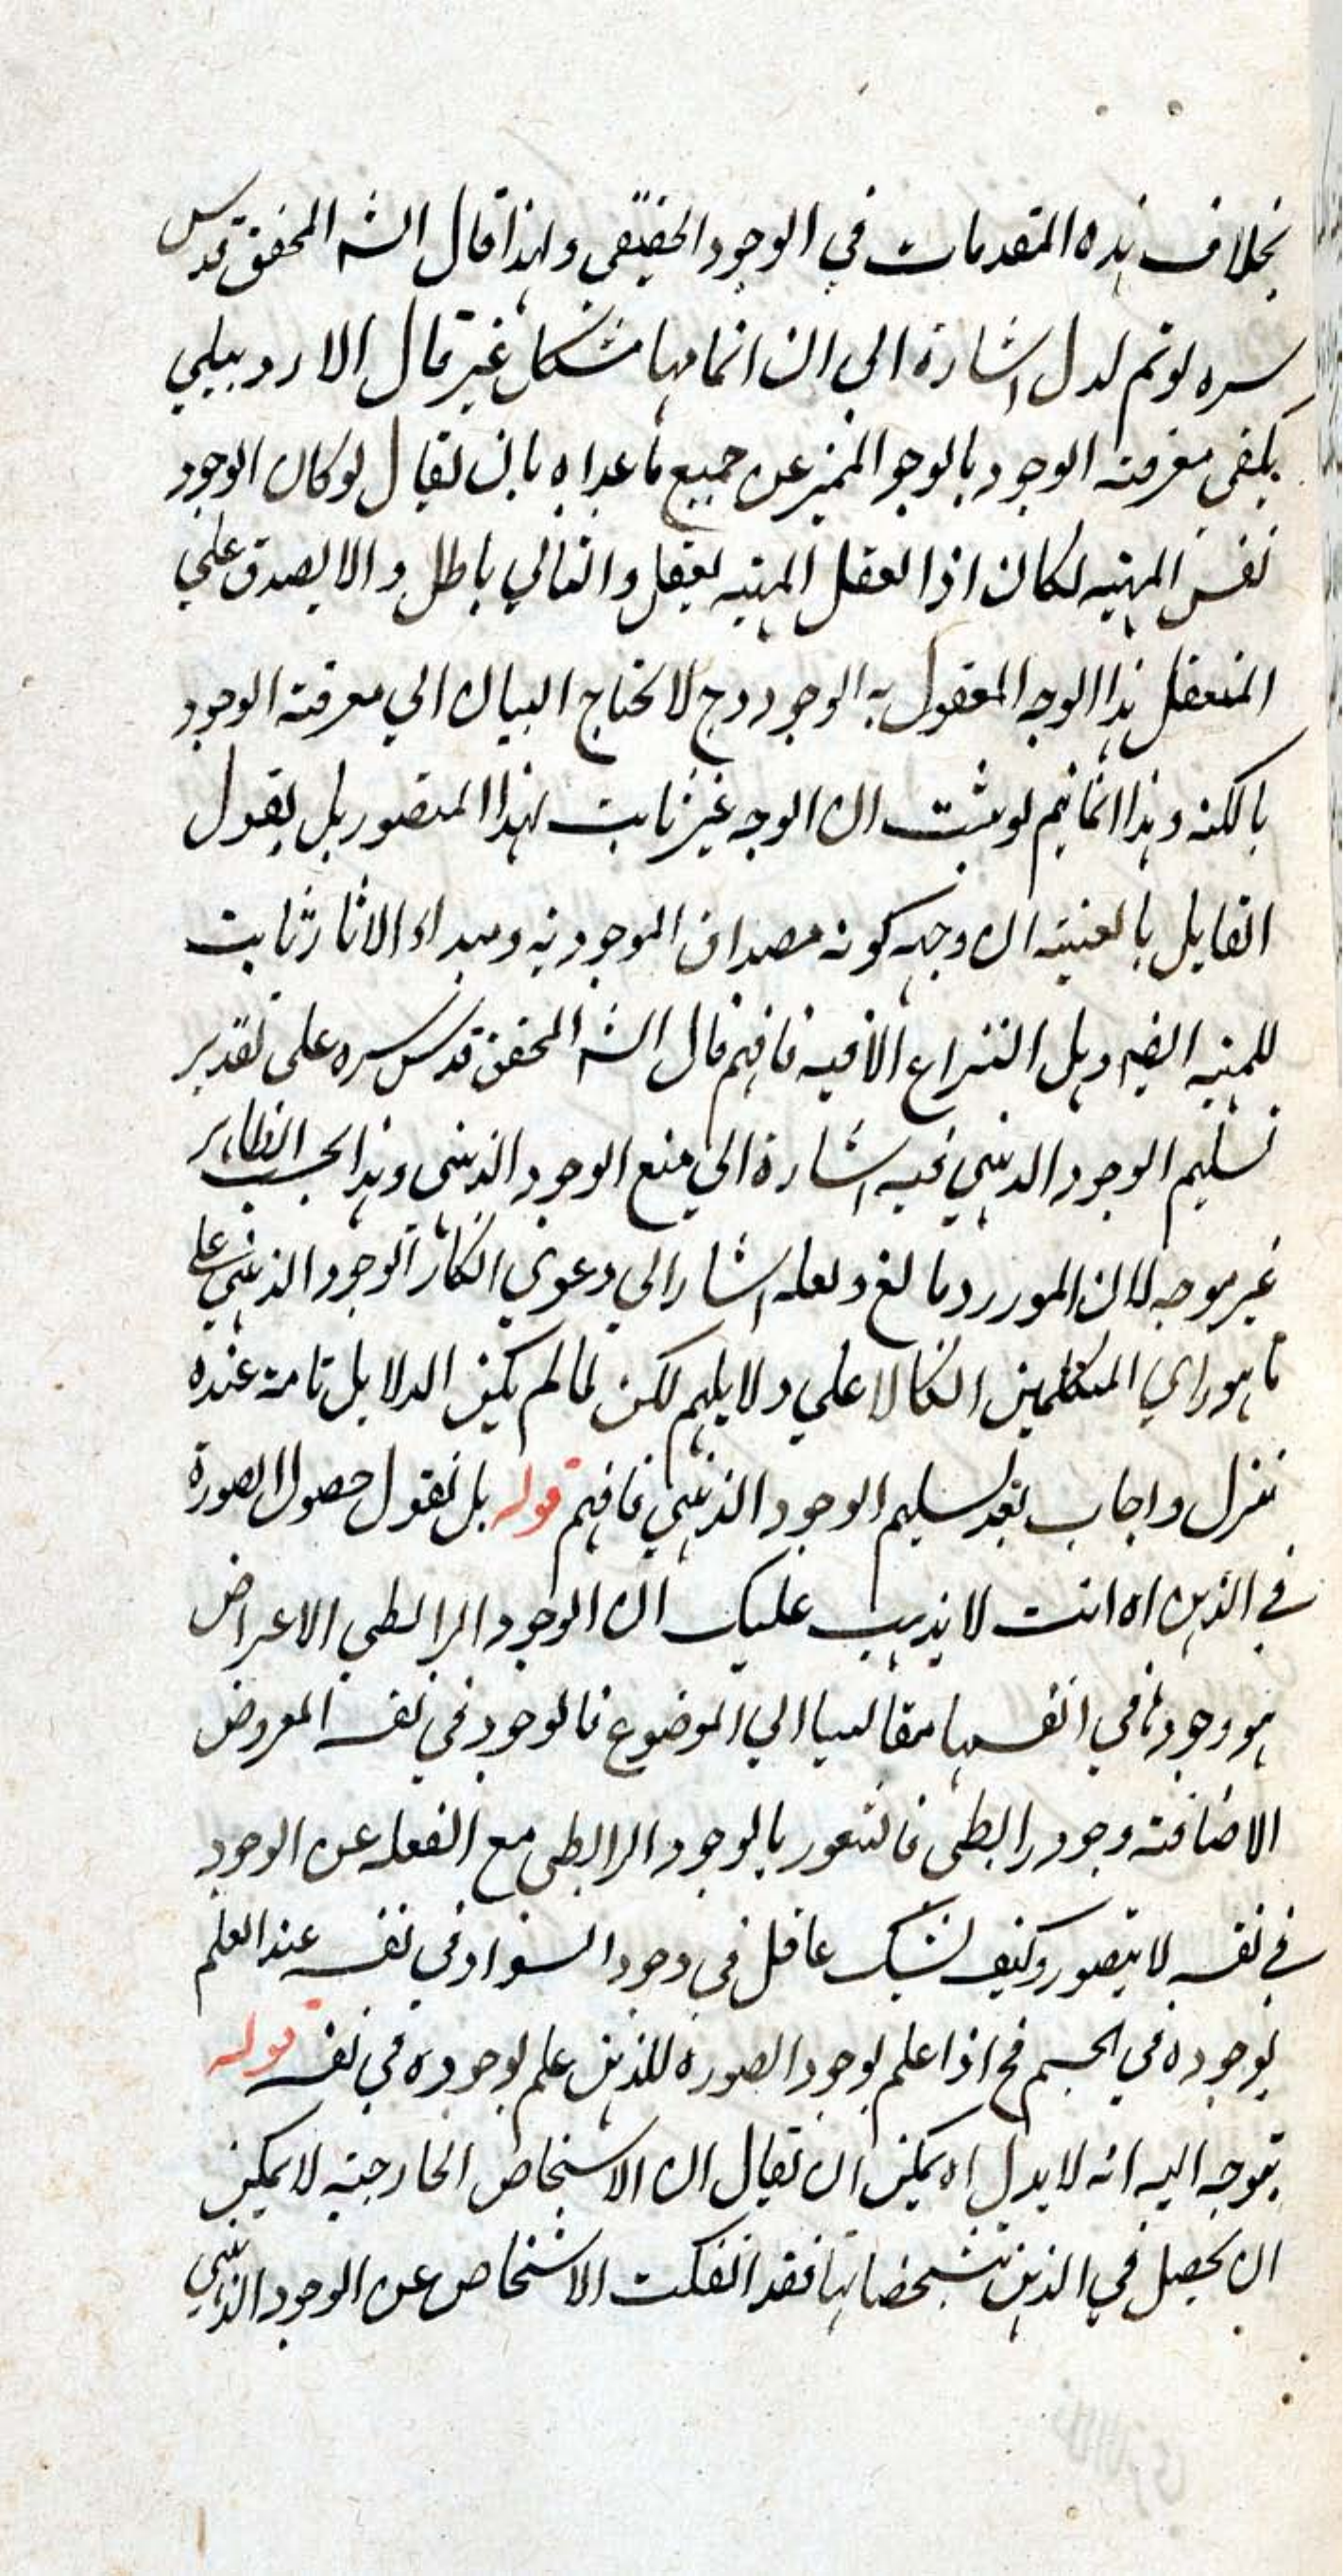 بخلاف هذه المقدمات في الوجود الحقيقي ولهذا قال الشه المحقق قدس
سره لو تم لدل اشارة الي ان اتمامها مشكل غير قال الاردبيلي
يكفي معرفته الوجود بالوجو المميز عن جميع ما عداه بان يقال لو كان الوجود
نفس المهية لكان اذا تعقل المهية يعقل والتالي باطل والا يصدق علي
المتعقل هذا الوجه المعقول به الوجود وح لا يحتاج البيان الي معرفته الوجود
بالكنه وهذا انما يتم لو يثبت ان الوجه غير ثابت لهذا المتصور بل يقول
القايل بالعينية ان وجهه كونه مصداق الموجودية ومبداء الاثار ثابت
للمهية ايضا وهل النزاع الا فيه فافهم قال الشه المحقق قدس سره علي تقدير
تسليم الوجود الذهني فيه اشارة الي منع الوجود الذهني وهذا بحسب الظاهر
غير موجه لان المورد مانع ولعله اشار الي دعوي انكار الوجود الذهني علي
ما هو راي المتكلمين اتكالا علي دلايلهم لكن لما لم يكن الدلايل تامة عنده
تنزل واجاب بعد تسليم الوجود الذهني فافهم قوله بل نقول حصول الصورة
في الذهن اه انت لا يذهب عليك ان الوجود الرابطي الاعراض
هو وجودها في انفسها مقايسا الي الموضوع فالوجود في نفسه المعروض
الاضافة وجود رابطي فالشعور بالوجود الرابطي مع الغفلة عن الوجود
في نفسه لا يتصور وكيف يشك عاقل في وجود السواد في نفسه عند العلم
بوجوده في الجسم فح اذا علم بوجود الصورة للذهن علم بوجوده في نفسه قوله
يتوجه اليه انه لا يدل اه يمكن ان يقال ان الاشخاص الخارجية لا يمكن
ان يحصل في الذهن بتشخصاتها فقد انفكت الاشخاص عن الوجود الذهني